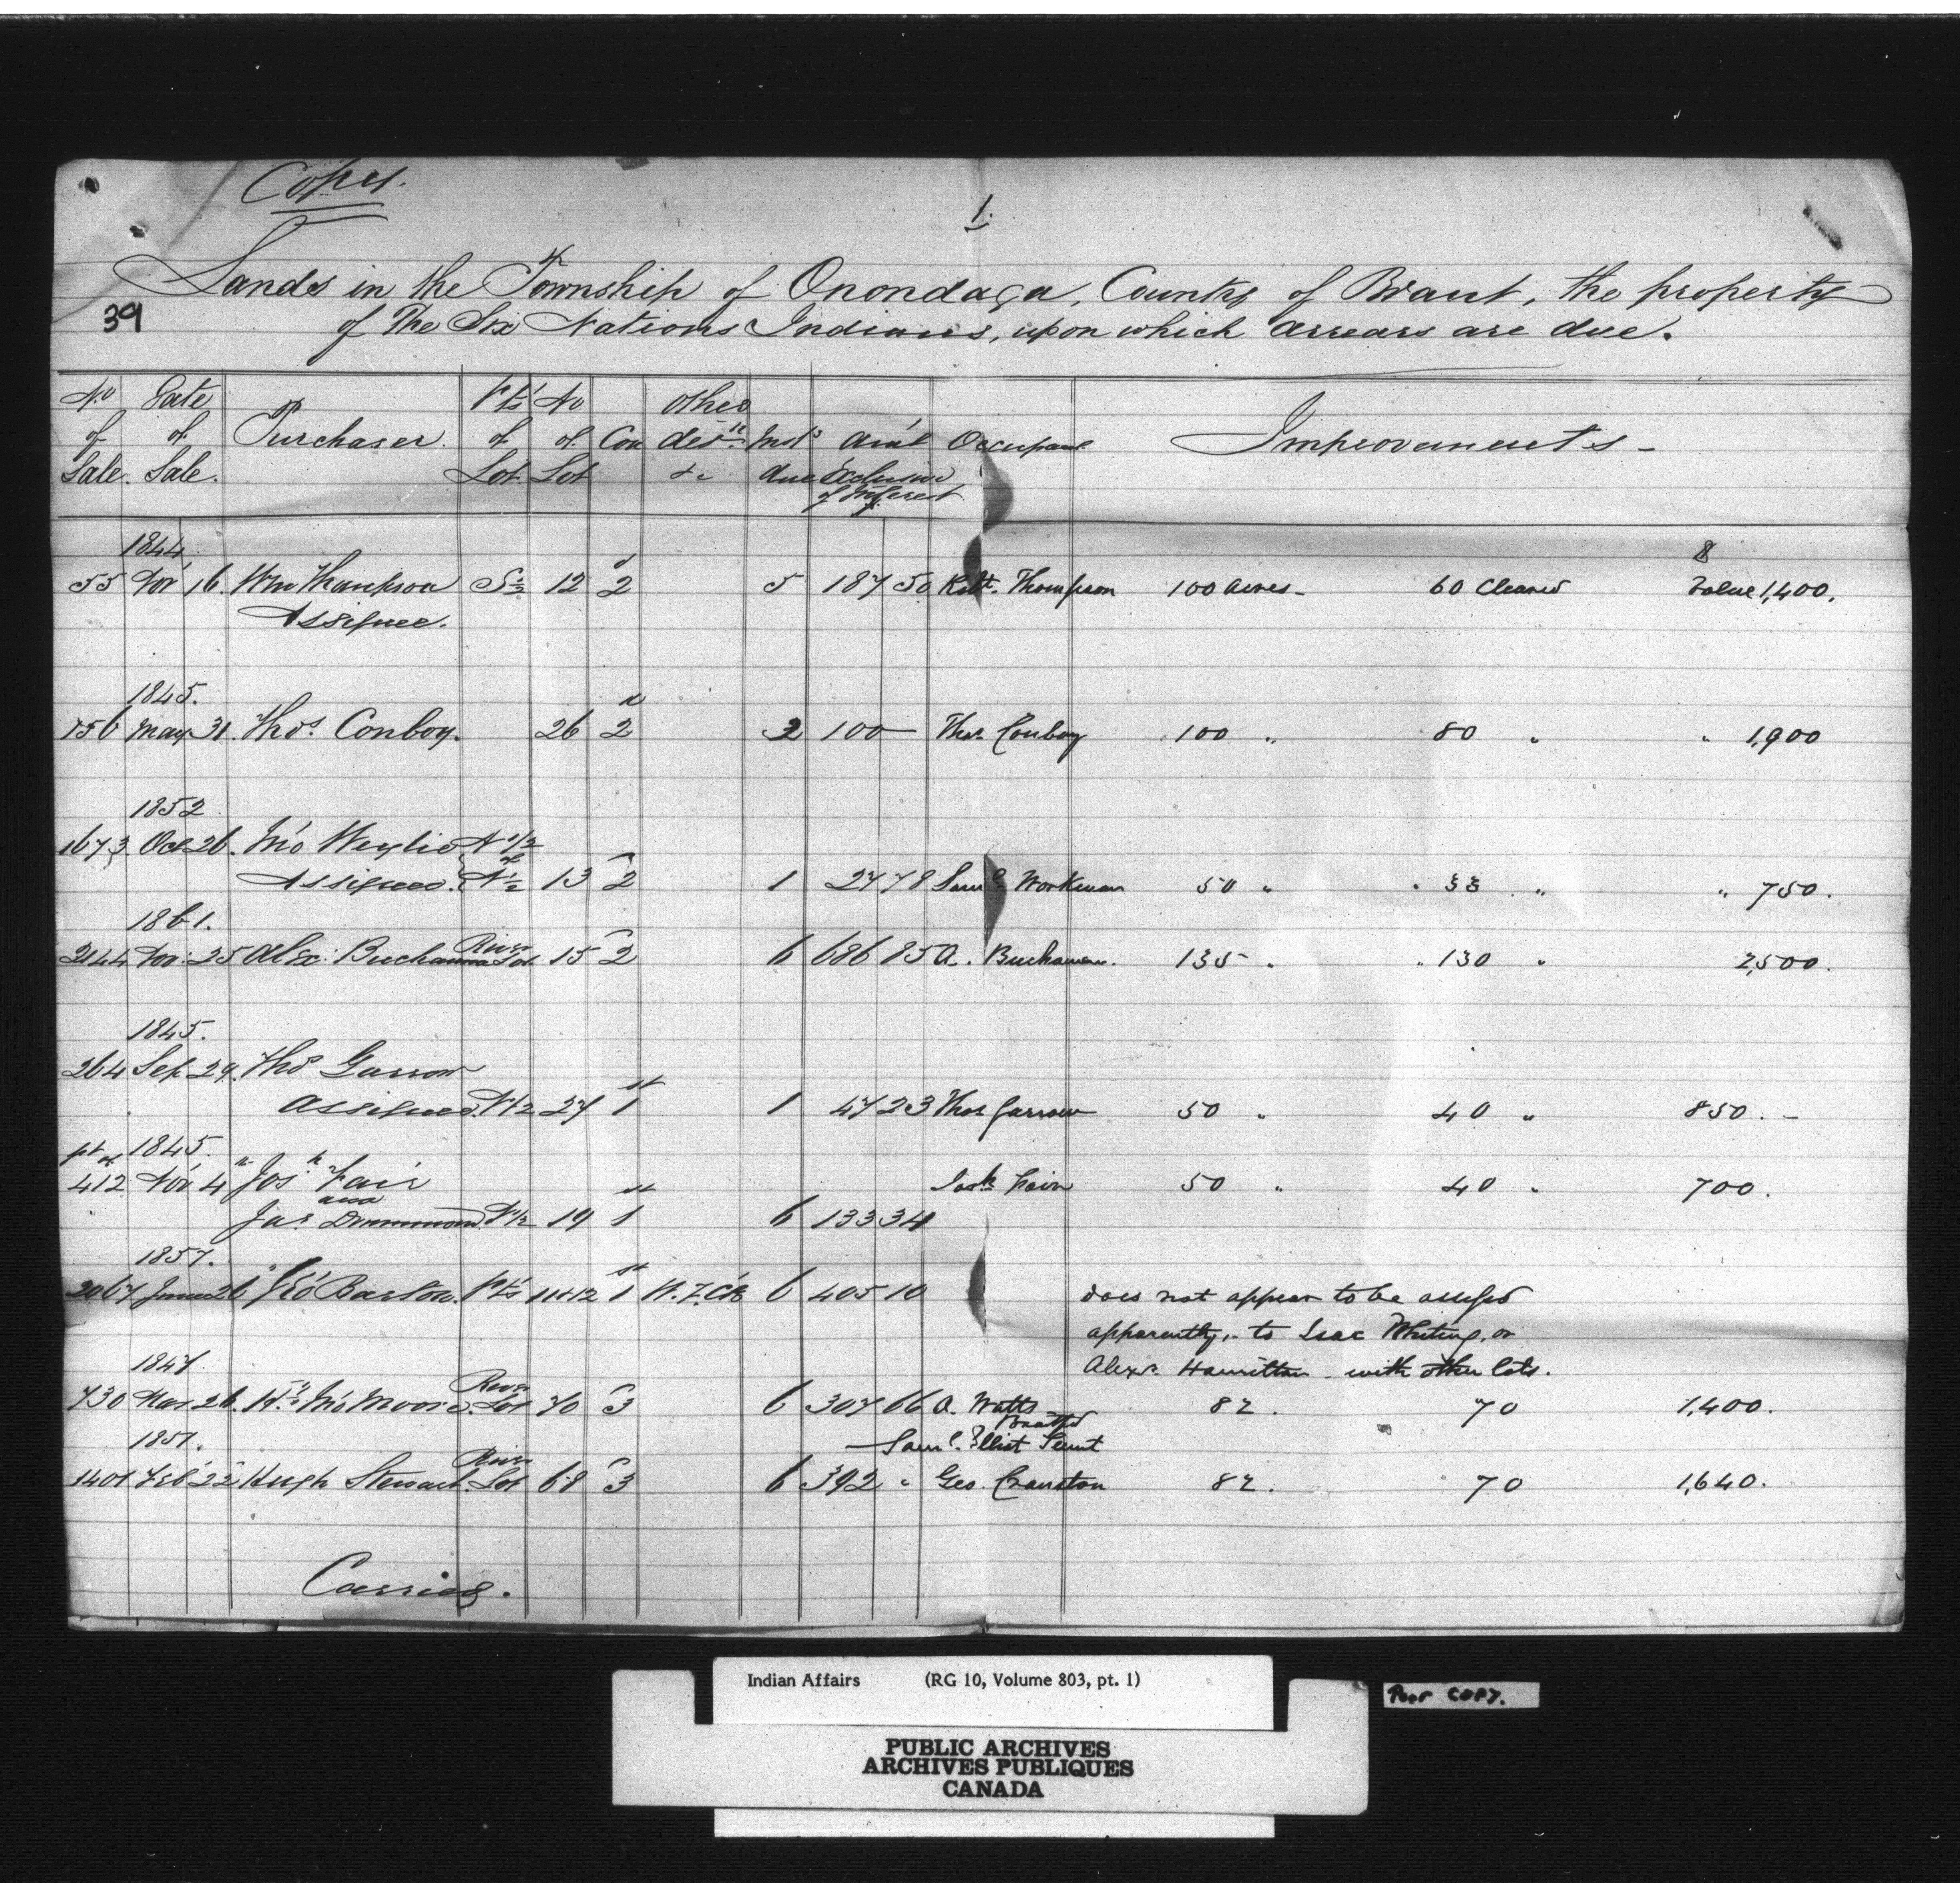 Copy.
1.
Lands in the Township of Onondaga, County of Brant, the property
39
of the Six Nations Indians, upon which arrears are due.
No Date Pts No Other
of of Purchaser of of Con des Inst's Am't Occupant Improvements -
Sale. Sale. Lot Lot &c due Exclusive
of Interest
1844 $
55 Nov 16. Wm Thompson S½ 12 2 5 187 50 Robt. Thompson 100 acres - 60 Cleared Value 1,400.
Assignee.
1845.
156 May 31. Thos. Conboy. 26 2 2 100 — Thos. Conboy 100 " 80 " " 1,900
1852
1673 Oct 26. N 1/2
of
Assignee. N½ 13 2 1 27 78 Saml. Workman 50 " 33 " " 750.
1861.
River
2144 Nov. 25 Alex. Buchanan Lot 15 2 6 686 85 A. Buchanan. 135 " " 130 " 2,500.
1845.
264 Sep 29. Thos Garrow
Assignee. N½ 27 1st 1 47 23 Thos Garrow 50 " 40 " 850. -
pt of 1845.
412 Nov 4 Josh Fair Josh Fair 50 " 40 " 700.
and
Jas. Drummond. N½ 19 1st 6 133 34
1857.
2067 June 26 Geo Barton. Pts 11+12 1st 6 405 10 does not appear to be assessed
apparently, - to Isac Whiting, or
1847. Alexr. Hamilton - with other lots.
River
730 Mar 26. Moore. Lot 70 3 6 307 66 A. Watts 82. 70 1,400.
Brantford
1851. Saml. Elliot Tennt
River
1401 Feb 22 Hugh Stewart. Lot 68 3 6 392 " Geo. Cranston 82. 70 1,640.
Carried.
Indian Affairs (RG 10, Volume 803, pt. 1)
Poor COPY.
PUBLIC ARCHIVES
ARCHIVES PUBLIQUES
CANADA